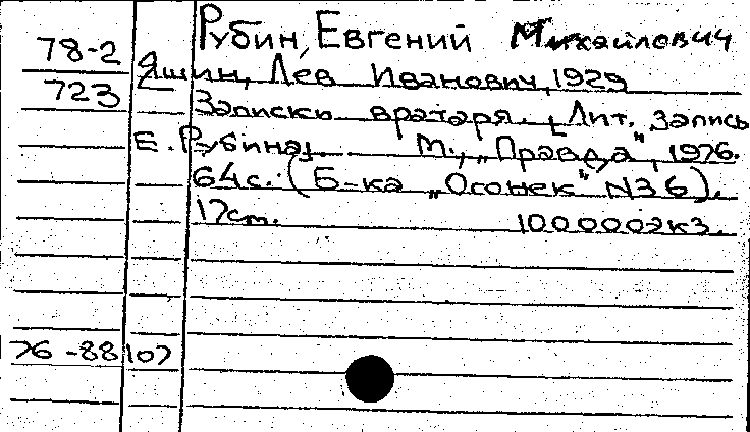 Рубин, Евгений Михайлович
78-2
723
Яшин, Лев Иванович, 1929
Записки вратаря. [Лит. запись
Е. Рубина]. М., „Правда", 1976.
64 с. (Б-ка „Огонек" N36).
17 cm. 100000экз.
76-88107